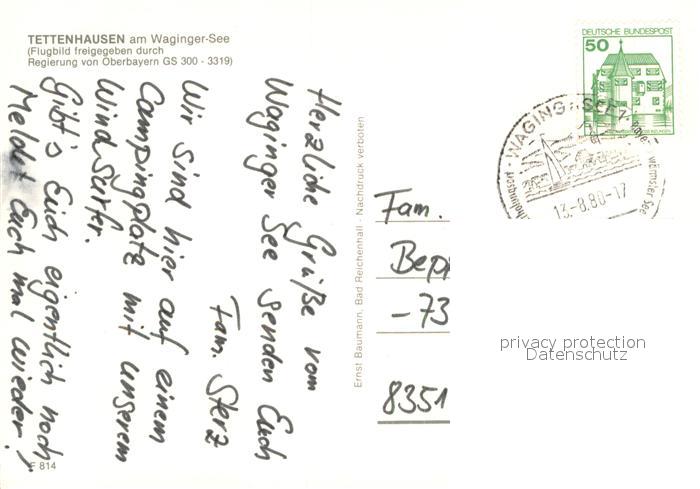 TETTENHAUSEN am Waginger-See
(Flugbild freigegeben durch
Regierung von Oberbayern GS 300 - 3319)
Herzliche Grüße vom
Waginger See senden Euch
Fam. Sterz
Wir sind hier auf einem
Campingplatz mit unserem
Windsurfr.
Gibt's Euch eigentlich noch
Meldet Euch mal wieder!
F 814
Ernst Baumann, Bad Reichenhall - Nachdruck verboten
DEUTSCHE BUNDESPOST
50
WAGING A. SEE 1
wärmster See
13.-8.80-17
Fam.
Bepp
-73
8351
privacy protection
Datenschutz